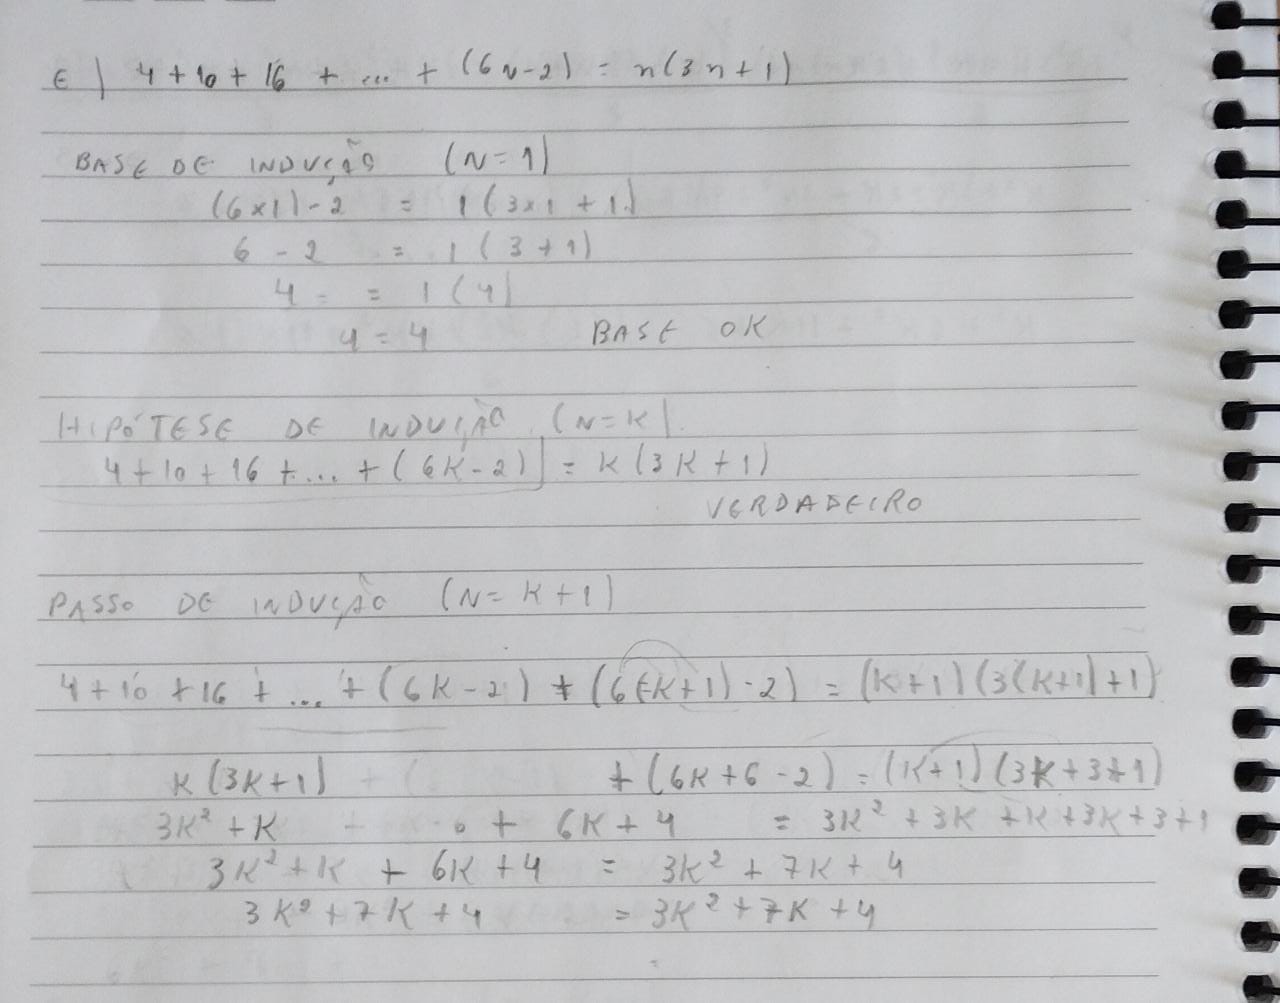 E) 4+10+16 + ... + (6N-2) = n(3n+1)
BASE DE INDUÇÃO (N=1)
(6x1)-2 = 1(3x1+1)
6 - 2 = 1(3+1)
4 = = 1(4)
4 = 4 BASE OK
HIPÓTESE DE INDUÇÃO (N=K).
4+10+16+...+(6K-2) = K(3K+1)
VERDADEIRO
PASSO DE INDUÇÃO (N=K+1)
4+10+16+...+(6K-2)+(6(K+1)-2) = (K+1)(3(K+1)+1)
K(3K+1) +(6K+6-2) = (K+1)(3K+3+1)
3K²+K + 6K+4 = 3K²+3K+K+3K+3+1
3K²+K + 6K+4 = 3K²+7K+4
3K²+7K+4 = 3K²+7K+4